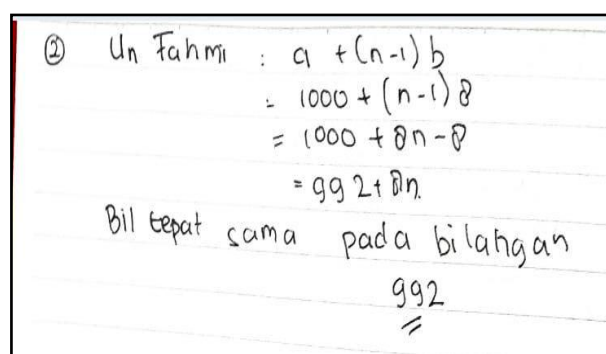 ② Un Fahmi : a + (n-1) b
= 1000 + (n-1) 8
= 1000 + 8n - 8
= 992 + 8n.
Bil tepat sama pada bilangan
992